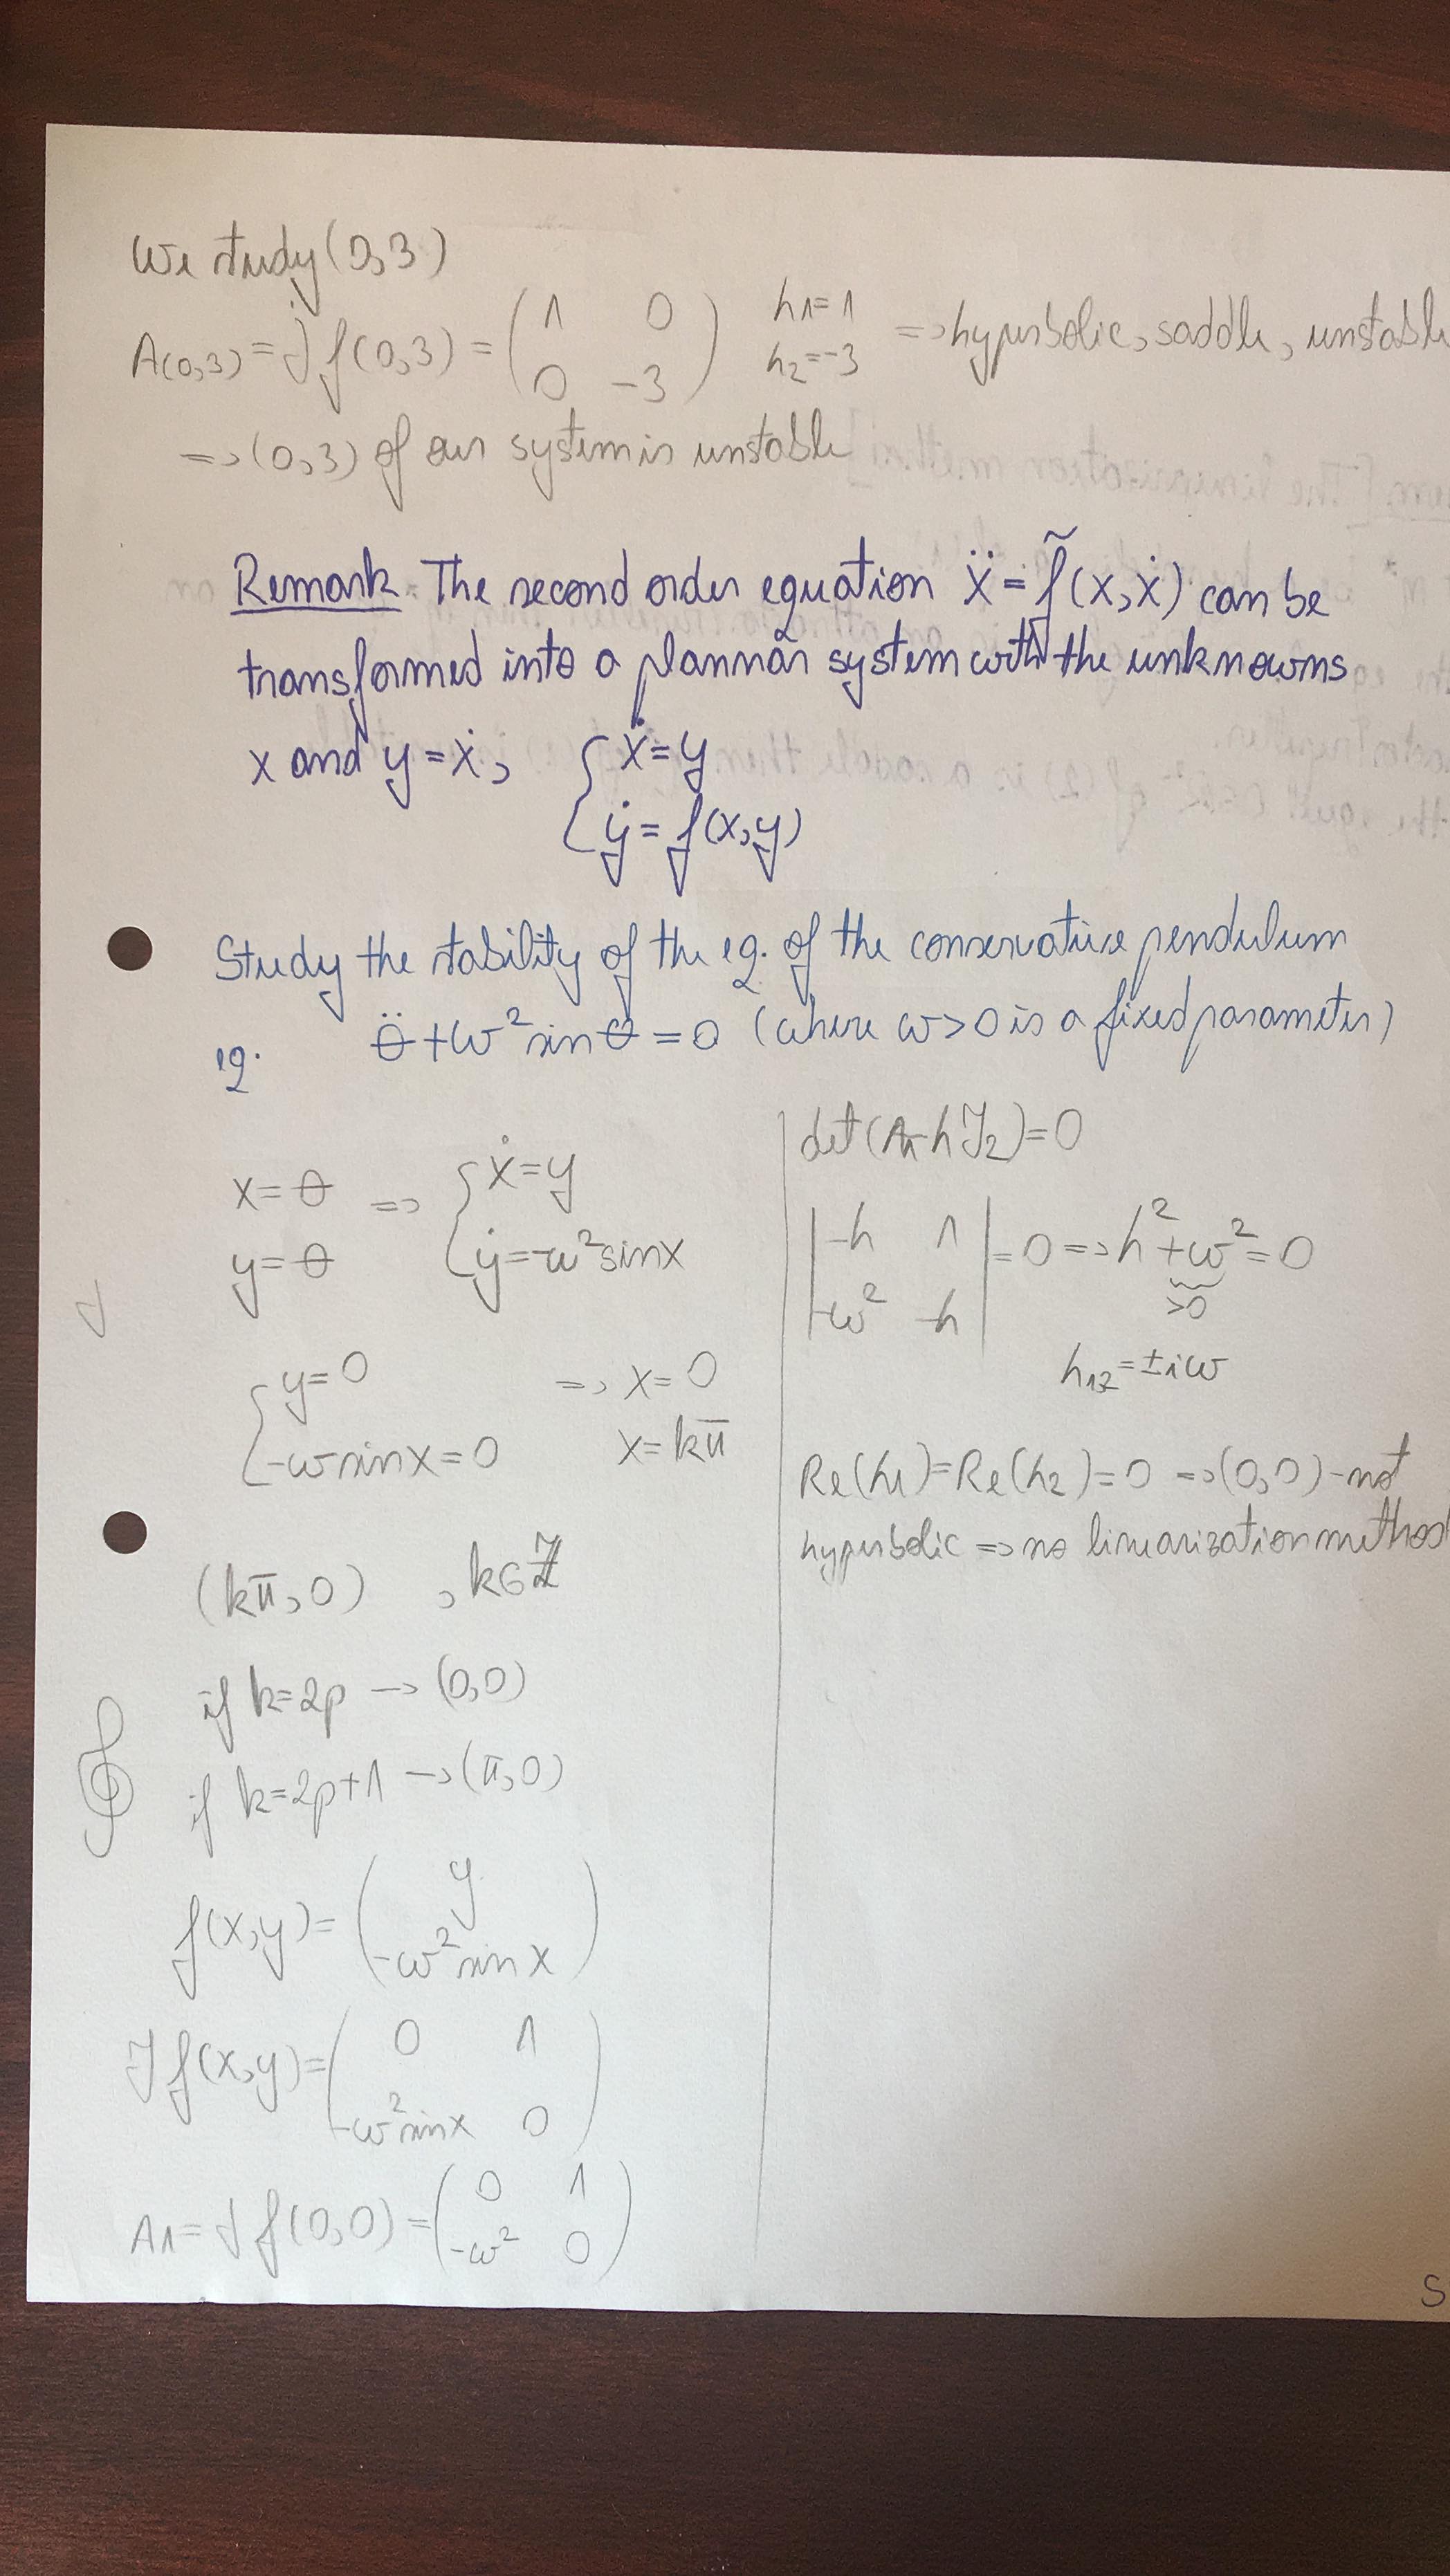 We study (0,3)
A(0,3) = Jf(0,3) = (1 0 0 -3) h1=1 h2=-3 => hyperbolic, saddle, unstable
=> (0,3) of our system is unstable
Remark. The second order equation ẍ = f̃(x,ẋ) can be
transformed into a plannar system with the unknowns
x and y = ẋ, { ẋ=y
ẏ = f(x,y)
Study the stability of the eq. of the conservative pendulum
eq. θ̈ + ω² sin θ = 0 (where ω>0 is a fixed parameter)
x = θ => { ẋ=y
y = θ ẏ=-ω² sin x
{ y=0 => x=0
-ω sin x = 0 x=kπ
(kπ,0) , k∈Z
if k=2p -> (0,0)
if k=2p+1 -> (π,0)
f(x,y) = ( y
-ω² sin x )
Jf(x,y) = ( 0 1
-ω² sin x 0 )
A1 = Jf(0,0) = ( 0 1
-ω² 0 )
det(A1-hJ2)=0
| -h 1
-ω² -h | = 0 => h²+ω²=0
>0
h12 = ±iω
Re(h1)=Re(h2)=0 => (0,0) - not
hyperbolic => no linearization method